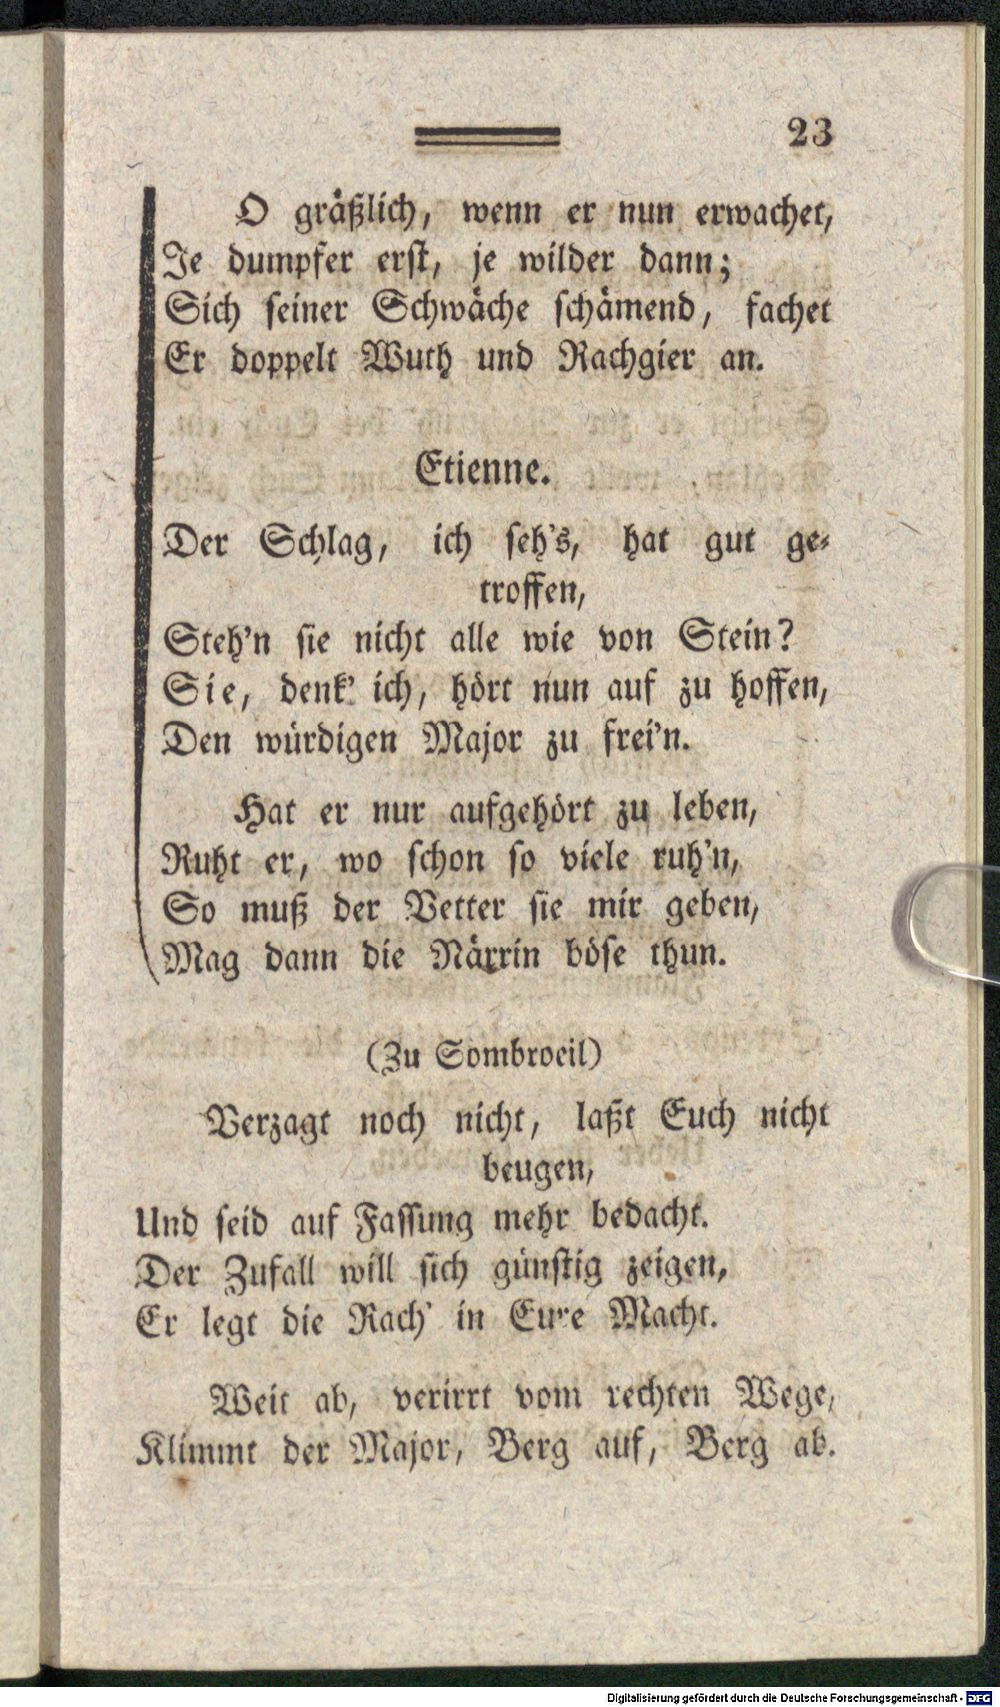 23
O gräßlich, wenn er nun erwachet,
Je dumpfer erst, je wilder dann;
Sich seiner Schwäche schämend, fachet
Er doppelt Wuth und Rachgier an.
Etienne.
Der Schlag, ich seh's, hat gut ge-
troffen,
Steh'n sie nicht alle wie von Stein?
Sie, denk' ich, hört nun auf zu hoffen,
Den würdigen Major zu frei'n.
Hat er nur aufgehört zu leben,
Ruht er, wo schon so viele ruh'n,
So muß der Vetter sie mir geben,
Mag dann die Närrin böse thun.
(Zu Sombroeil)
Verzagt noch nicht, laßt Euch nicht
beugen,
Und seid auf Fassung mehr bedacht.
Der Zufall will sich günstig zeigen,
Er legt die Rach' in Eure Macht.
Weit ab, verirrt vom rechten Wege,
Klimmt der Major, Berg auf, Berg ab.
Digitalisierung gefördert durch die Deutsche Forschungsgemeinschaft - DFG